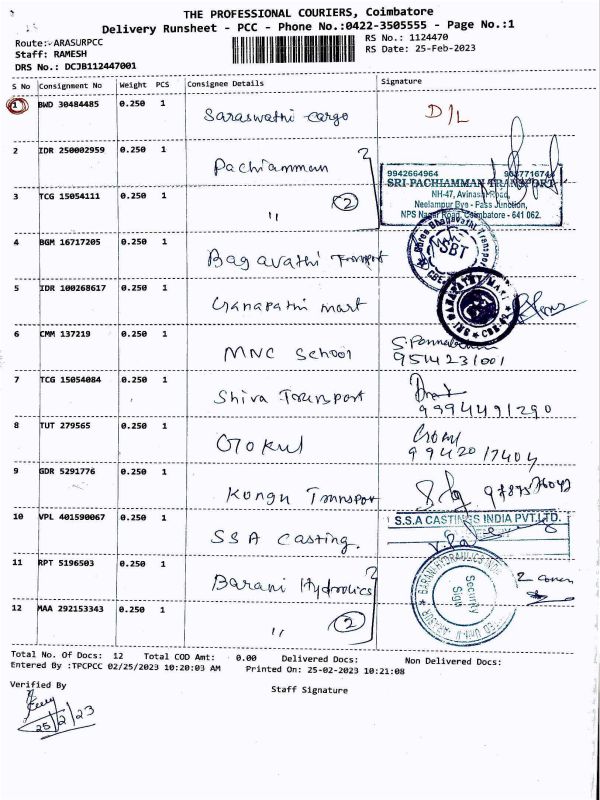 THE PROFESSIONAL COURIERS, Coimbatore
Delivery Runsheet - PCC - Phone No.:0422-3505555 - Page No.:1
Route:- ARASURPCC
Staff: RAMESH
DRS No.: DCJB112447001
RS No.: 1124470
RS Date: 25-Feb-2023
S No Consignment No Weight PCS Consignee Details Signature
1 BWD 30484485 0.250 1 Saraswathi cargo D/L
2 IDR 250002959 0.250 1 Pachiamman
9942664964
SRI PACHIAMMAN TRANSPORT
NH-47, Avinasi Road,
Neelampur Bye - Pass Junction,
NPS Nagar Road, Coimbatore - 641 062.
3 TCG 15054111 0.250 1 " 2
4 BGM 16717205 0.250 1 Bagavathi Transport
SBT
5 IDR 100268617 0.250 1 Ganapathi mart
6 CMM 137219 0.250 1 MNC School
9514231001
7 TCG 15054084 0.250 1 Shiva Transport
9994491290
8 TUT 279565 0.250 1 Gokul
9942017404
9 GDR 5291776 0.250 1 Kongu Transport
10 VPL 401590067 0.250 1 SSA Casting.
S.S.A CASTINGS INDIA PVT.LTD.
11 RPT 5196503 0.250 1 Barani Hydrolics
BARANI HYDRAULICS INDIA
Security
Sign
12 MAA 292153343 0.250 1 " 2
Total No. Of Docs: 12 Total COD Amt: 0.00 Delivered Docs: Non Delivered Docs:
Entered By :TPCPCC 02/25/2023 10:20:03 AM Printed On: 25-02-2023 10:21:08
Verified By
Staff Signature
25/2/23